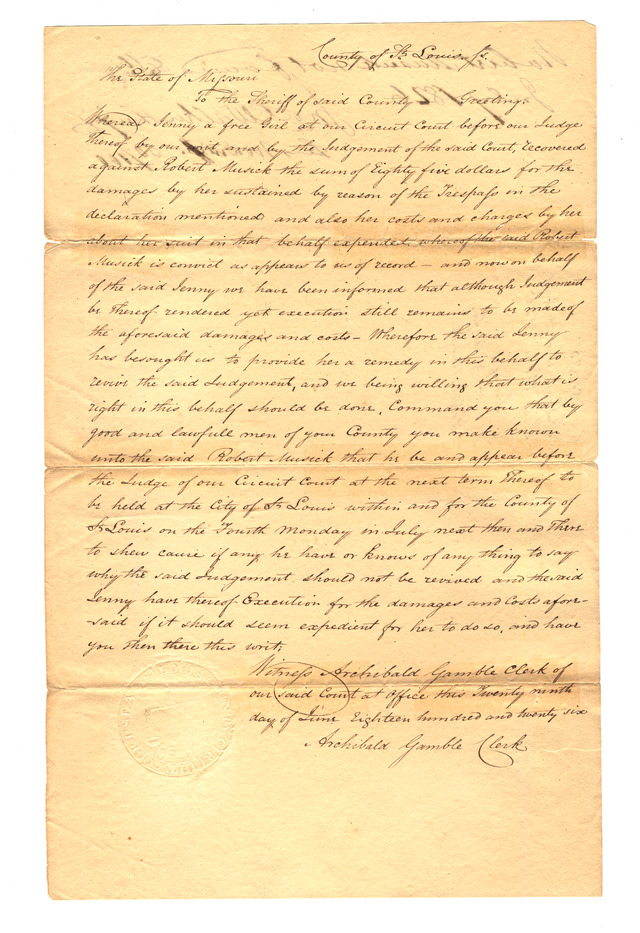 County of St Louis, ss.
The State of Missouri
To the Sheriff of said County Greeting:
Whereas Jenny a free Girl at our Circuit Court before our Judge
thereof by our writ and by the Judgement of the said Court, recovered
against Robert Musick the sum of Eighty five dollars for the
damages by her sustained by reason of the Trespass in the
declaration mentioned and also her costs and charges by her
about her suit in that behalf expended, whereof the said Robert
Musick is convict as appears to us of record – and now on behalf
of the said Jenny we have been informed that although Judgement
be thereof rendered yet execution still remains to be made of
the aforesaid damages and costs – Wherefore the said Jenny
has besought us to provide her a remedy in this behalf to
revive the said Judgement, and we being willing that what is
right in this behalf should be done, Command you that by
good and lawfull men of your County you make known
unto the said Robert Musick that he be and appear before
the Judge of our Circuit Court at the next term thereof to
be held at the City of St Louis within and for the County of
St Louis on the Fourth Monday in July next then and there
to shew cause if any he have or knows of any thing to say
why the said Judgement should not be revived and the said
Jenny have thereof Execution for the damages and costs afore-
said if it should seem expedient for her to do so, and have
you then there this writ.
Witness Archibald Gamble Clerk of
our said Court at office this Twenty ninth
day of June Eighteen hundred and twenty six
Archibald Gamble Clerk